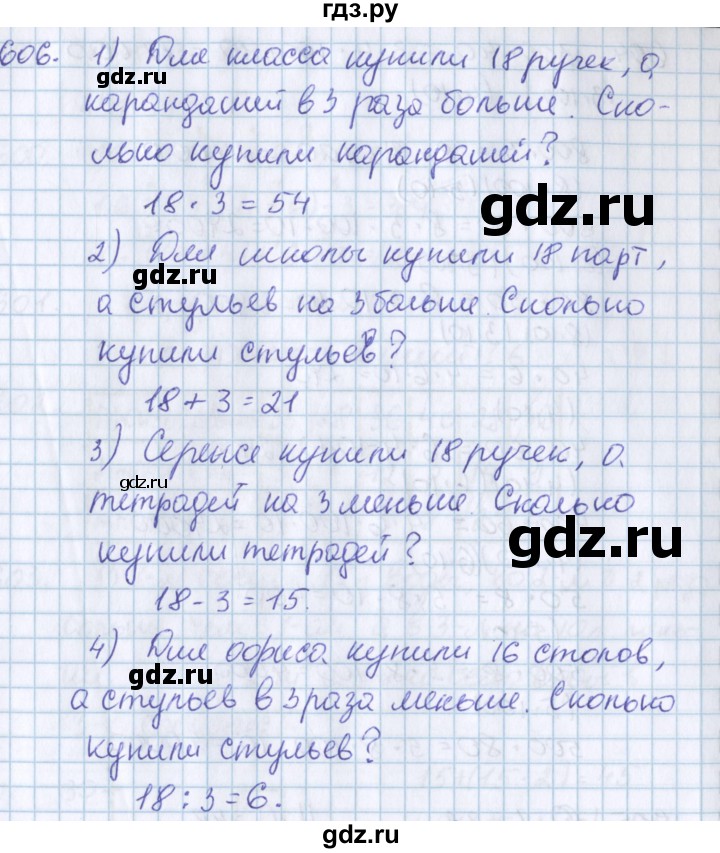 гдз.ру
606. 1) Для класса купили 18 ручек, а
gdz.ru
карандашей в 3 раза больше. Ско-
лько купили карандашей?
18 · 3 = 54
gdz.ru
2) Для школы купили 18 парт,
gdz.ru
а стульев на 3 больше. Сколько
купили стульев?
18 + 3 = 21
3) Сереже купили 18 ручек, а
gdz.ru
тетрадей на 3 меньше. Сколько
gdz.ru
купили тетрадей?
18 - 3 = 15.
4) Для офиса купили 16 столов,
gdz.ru
а стульев в 3 раза меньше. Сколько
купили стульев?
18 : 3 = 6.
gdz.ru